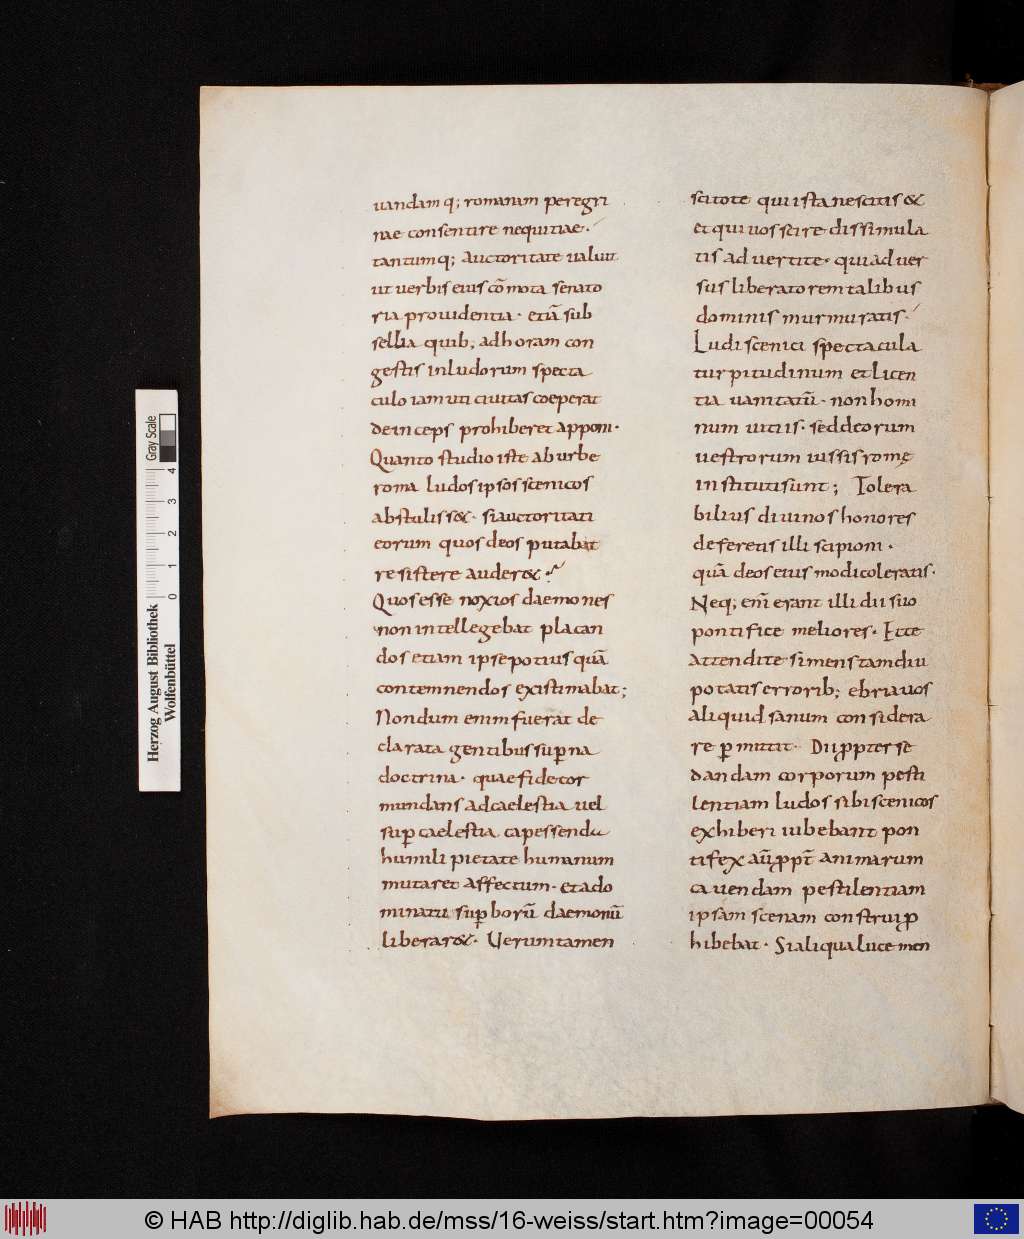 uandamq; romanam peregri
nae consentire nequitiae.
tantumq; auctoritate ualuit
ut uerbis eius cōmota senato
ria prouidentia· etiā sub
sellia quib; ad horam con
gestis inludorum specta
culo iam uti ciuitas coeperat
deinceps prohiberet apponi·
Quanto studio iste ab urbe
roma ludos ipsos scenicos
abstuliss&· si auctoritati
eorum quos deos putabat
resistere auder&·
Quos esse noxios daemones
non intellegebat placan
dos etiam ipse potius quā
contemnendos existimabat;
Nondum enim fuerat de
clarata gentibus suꝑna
doctrina· quae fide cor
mundans ad caelestia uel
suꝑcaelestia capessenda
humili pietate humanum
mutaret affectum· et a do
minatu suꝑborū daemonū
liberar&· Uerumtamen
scitote qui ista nescitis &
et qui uos scire dissimula
tis aduertite· qui aduer
sus liberatorem talibus
dominis murmuratis·
Ludi scenici spectacula
turpitudinum et licen
tia uanitatū· non homi
num uitiis· sed deorum
uestrorum iussis romę
instituti sunt; Tolera
bilius diuinos honores
deferetis illi scipioni·
quā deos eius modi coleratis·
Neq; enī erant illi dii suo
pontifice meliores· Ecce
attendite si mens tam diu
potatis errorib; ebria uos
aliquid sanum considera
re ꝑmittit· Dii ꝓpter se
dandam corporum pesti
lentiam ludos sibi scenicos
exhiberi iubebant pon
tifex aū ꝓpt̄ animarum
cauendam pestilentiam
ipsam scenam construi ꝓ
hibebat· Si aliqua luce men
Herzog August Bibliothek
Wolfenbüttel
0 1 2 3 4
Gray Scale
© HAB http://diglib.hab.de/mss/16-weiss/start.htm?image=00054